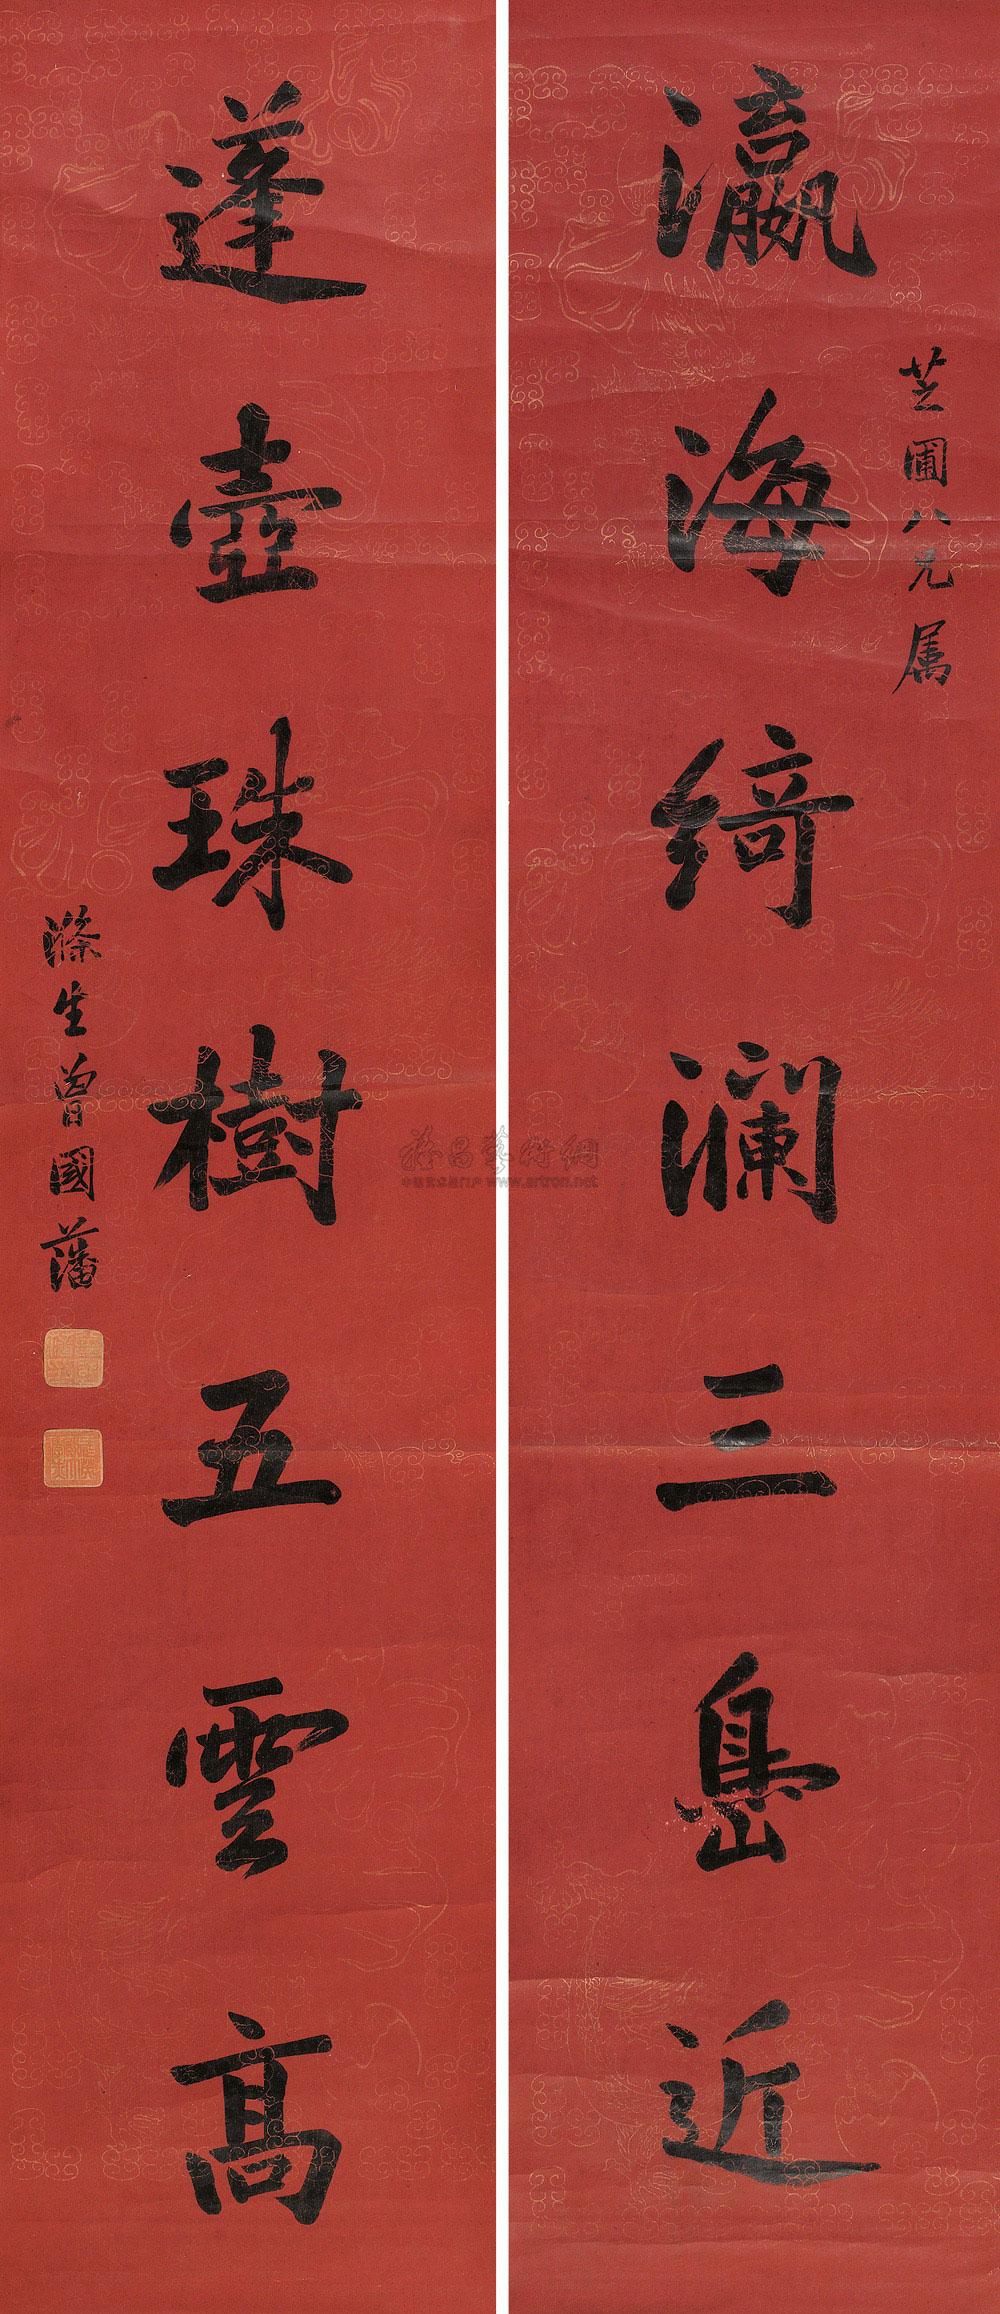 瀛海綺瀾三島近
芝圃八兄属
蓬壺珠樹五雲高
滌生曾國藩
雅昌藝術網
www.artron.net